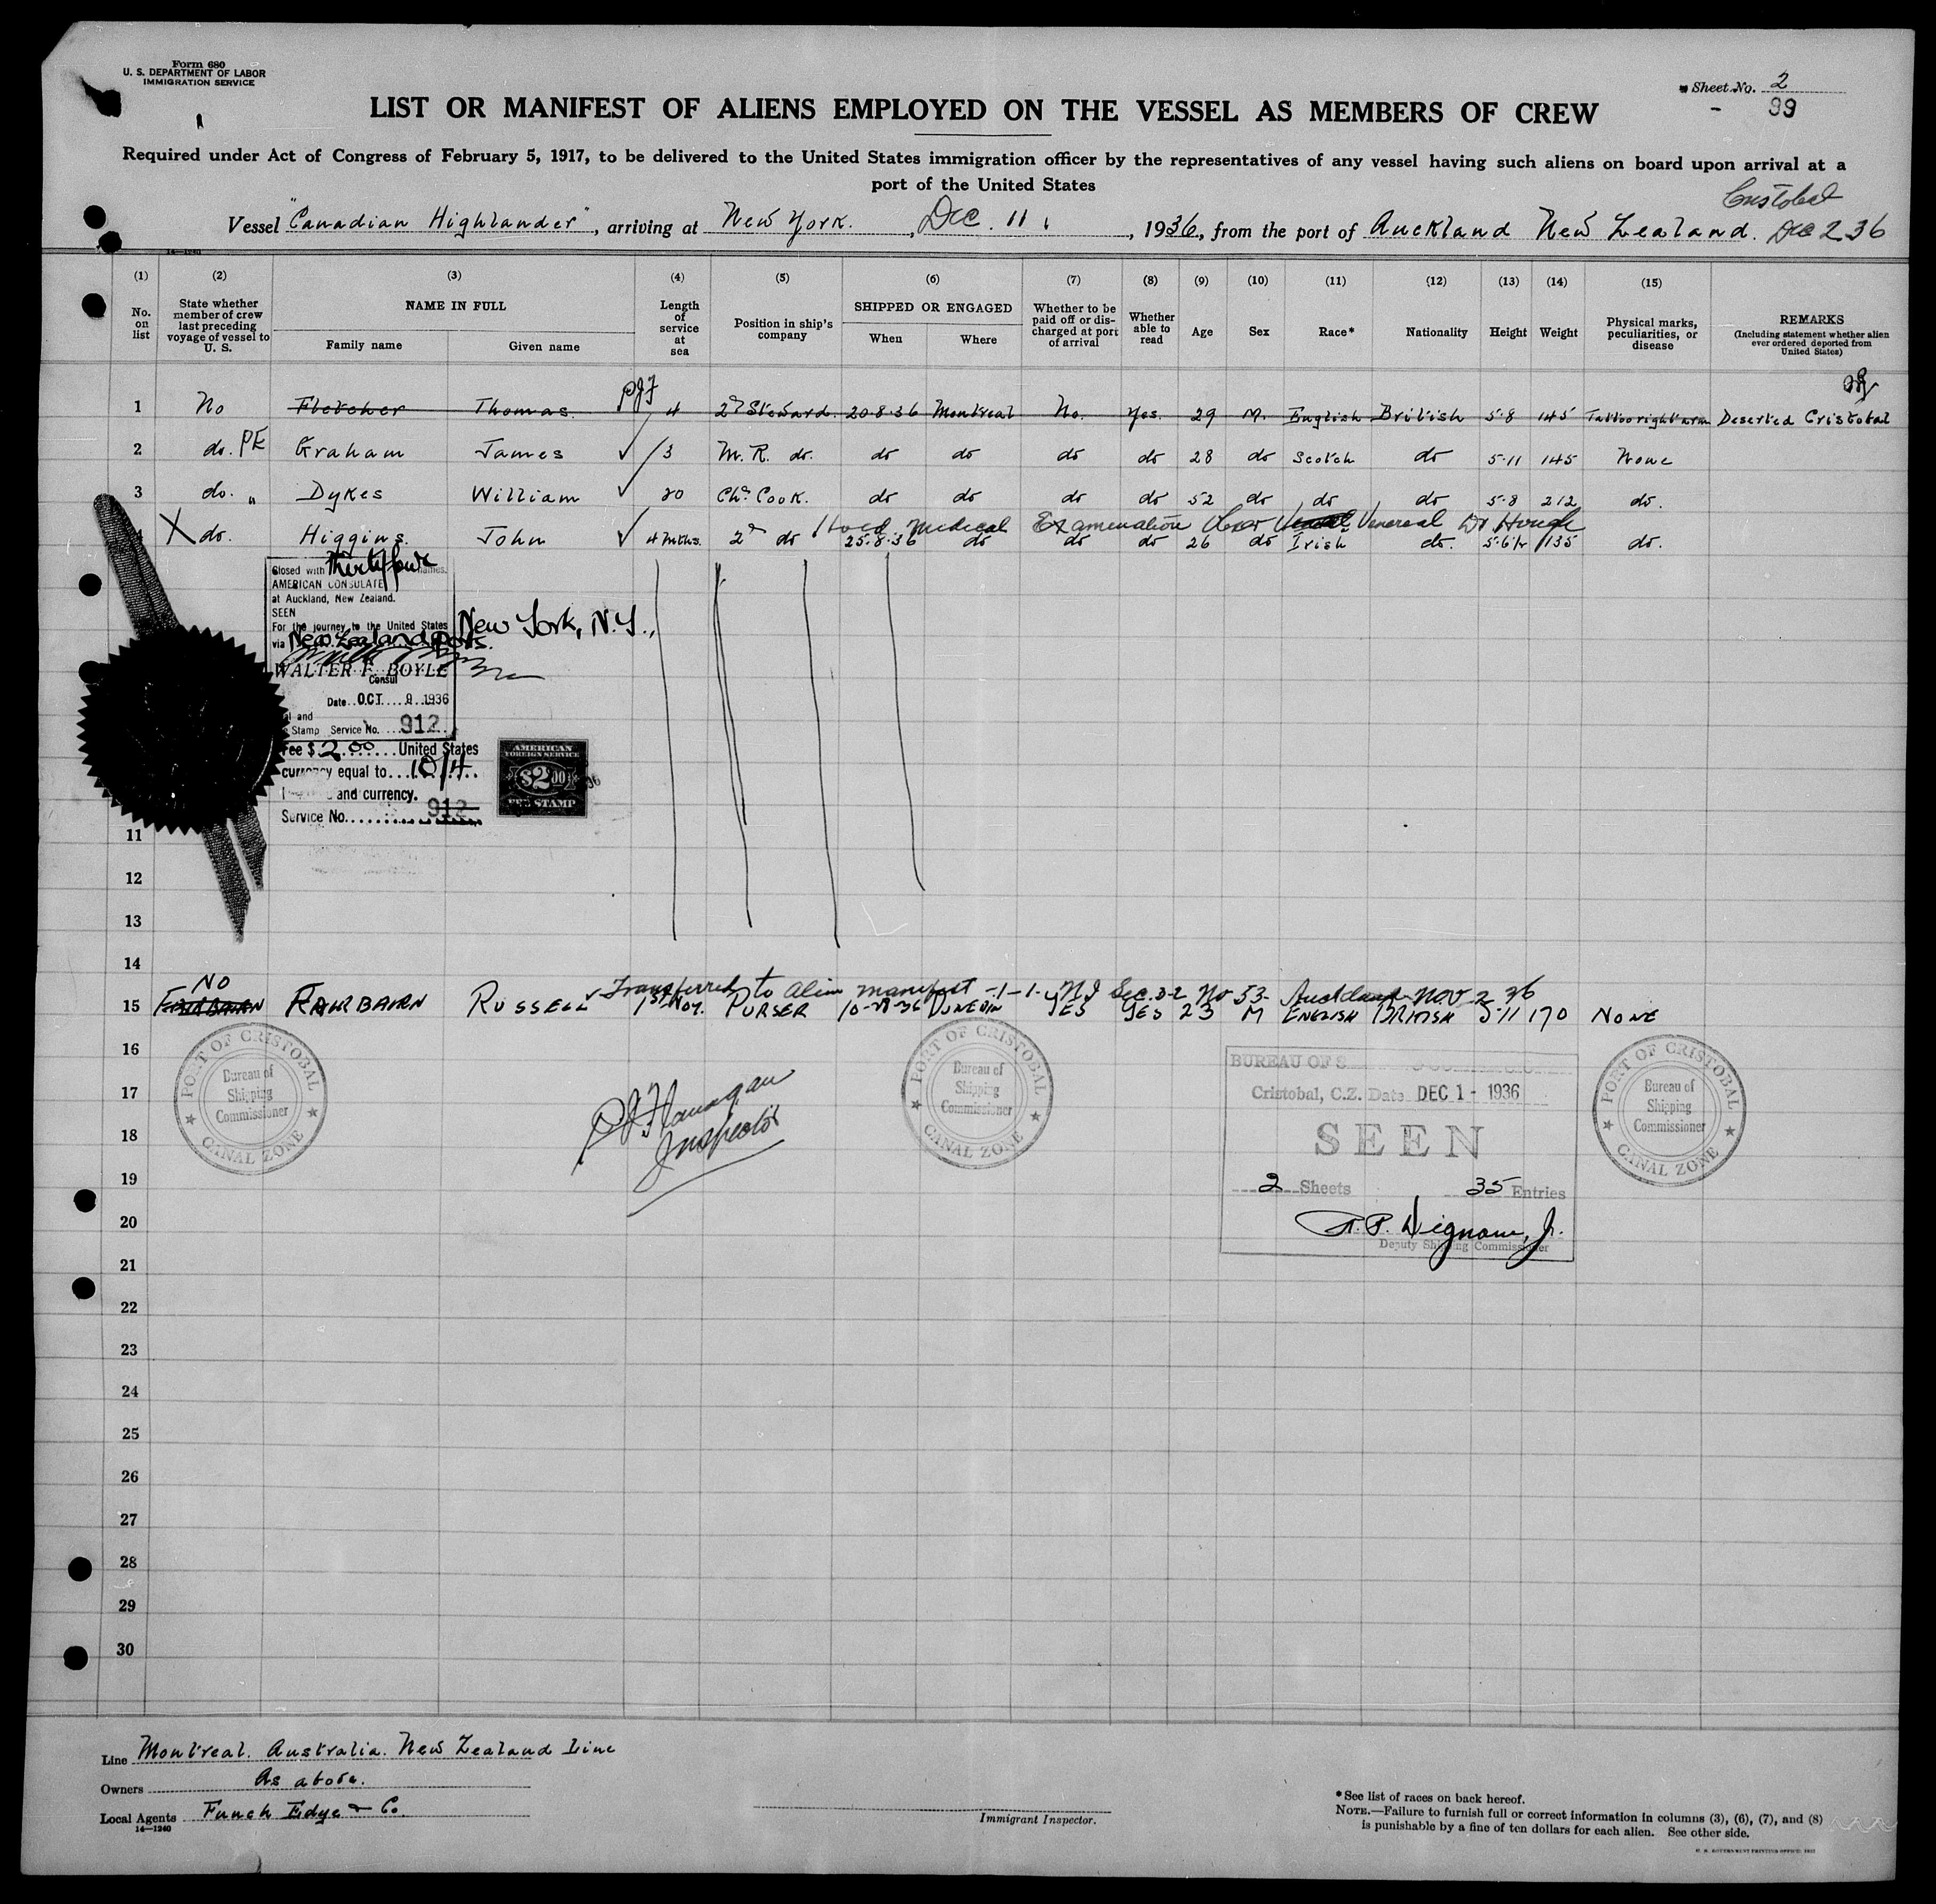 Form 680
U. S. DEPARTMENT OF LABOR
IMMIGRATION SERVICE
Sheet No. 2
- 99
LIST OR MANIFEST OF ALIENS EMPLOYED ON THE VESSEL AS MEMBERS OF CREW
Required under Act of Congress of February 5, 1917, to be delivered to the United States immigration officer by the representatives of any vessel having such aliens on board upon arrival at a
port of the United States
Cristobal
Vessel "Canadian Highlander", arriving at New York. , Dec. 11, , 1936, from the port of Auckland New Zealand. Dec 2 36
14—1240
(1) (2) (3) (4) (5) (6) (7) (8) (9) (10) (11) (12) (13) (14) (15)
No. on list
State whether member of crew last preceding voyage of vessel to U. S.
NAME IN FULL
Family name
Given name
Length of service at sea
Position in ship's company
SHIPPED OR ENGAGED
When
Where
Whether to be paid off or discharged at port of arrival
Whether able to read
Age
Sex
Race*
Nationality
Height
Weight
Physical marks, peculiarities, or disease
REMARKS
(Including statement whether alien ever ordered deported from United States)
PJF
1 No Fletcher Thomas. 4 2nd Steward. 20.8.36 Montreal No. Yes. 29 M. English British 5.8 145 Tattoo right arm Deserted Cristobal
2 do. PE Graham James ✓ 3 M.R. do. do do do do 28 do Scotch do 5.11 145 None
3 do. " Dykes William ✓ 20 Chf Cook. do do do do 52 do do do 5.8 212 do.
Medical Examination Venereal Dr Hough
4 X do. Higgins. John ✓ 4 mths. 2nd do 25.8.36 do do do 26 do Irish do. 5.6½ 135 do.
Closed with thirty four names.
AMERICAN CONSULATE
at Auckland, New Zealand.
SEEN
For the journey to the United States New York, N.Y.,
via New Zealand ports.
WALTER F. BOYLE
Consul
Date OCT 8 1936
Stamp Service No. 912
Fee $ 2.00 United States
currency equal to 10/4
and currency.
Service No. 912
AMERICAN
FOREIGN SERVICE
$2.00
FEE STAMP
11
12
13
14
NO Transferred to alien manifest -1-1- NJ Sec. 32 No 53 Auckland Nov 2 36
15 FAIRBAIRN FAIRBAIRN RUSSELL ✓ 1st Voy. PURSER 10-28-36 DUNEDIN YES YES 23 M ENGLISH BRITISH 5-11 170 NONE
16
17
18
19
20
21
22
23
24
25
26
27
28
29
30
PORT OF CRISTOBAL
Bureau of
Shipping
Commissioner
CANAL ZONE
PJ Flanagan
Inspector
PORT OF CRISTOBAL
Bureau of
Shipping
Commissioner
CANAL ZONE
BUREAU OF S
Cristobal, C.Z. Date DEC 1 - 1936
SEEN
2 Sheets 35 Entries
Dignam, Jr.
Deputy Shipping Commissioner
PORT OF CRISTOBAL
Bureau of
Shipping
Commissioner
CANAL ZONE
Line Montreal. Australia. New Zealand Line
Owners As above.
Local Agents Funch Edye & Co.
14—1240
Immigrant Inspector.
*See list of races on back hereof.
NOTE.—Failure to furnish full or correct information in columns (3), (6), (7), and (8)
is punishable by a fine of ten dollars for each alien. See other side.
U. S. GOVERNMENT PRINTING OFFICE: 1932